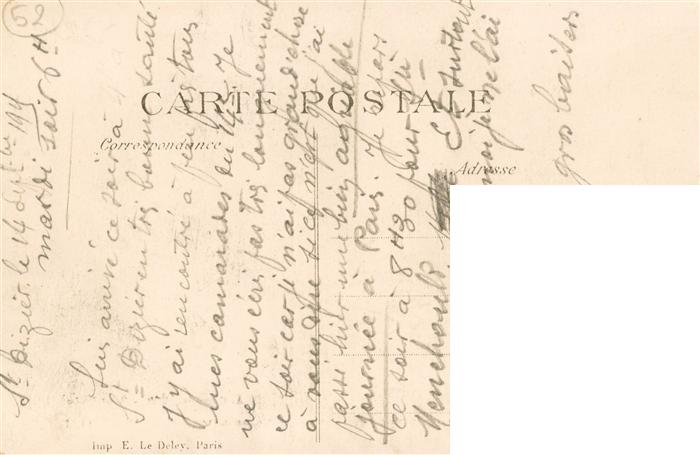 52
CARTE POSTALE
Correspondance
Adresse
St Dizier le 14 Septbre 191
mardi soir 6 H
Suis arrivé ce soir à
St Dizier en très bonne santé
J'y ai rencontré à peu près tous
mes camarades du 14e Je
ne vous écris pas très longuement
ce soir car je n'ai pas grand chose
à vous dire si ce n'est que j'ai
passé hier une bien agréable
journée à Paris. Je repars
ce soir à 8 H 30 pour Ste
Menehould. Et surtout
gros baisers
Imp E. Le Deley, Paris